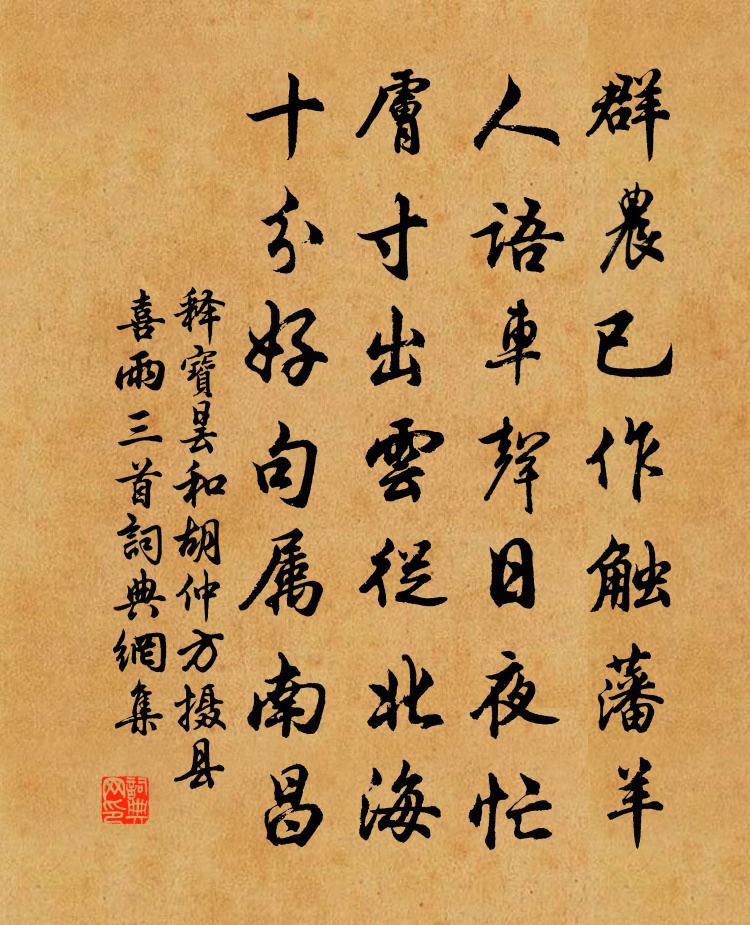 群農已作触藩羊
人語車聲日夜忙
膚寸出雲從北海
十分好句属南昌
释寶曇和胡仲方摄县
喜雨三首詞典網集
詞典网印